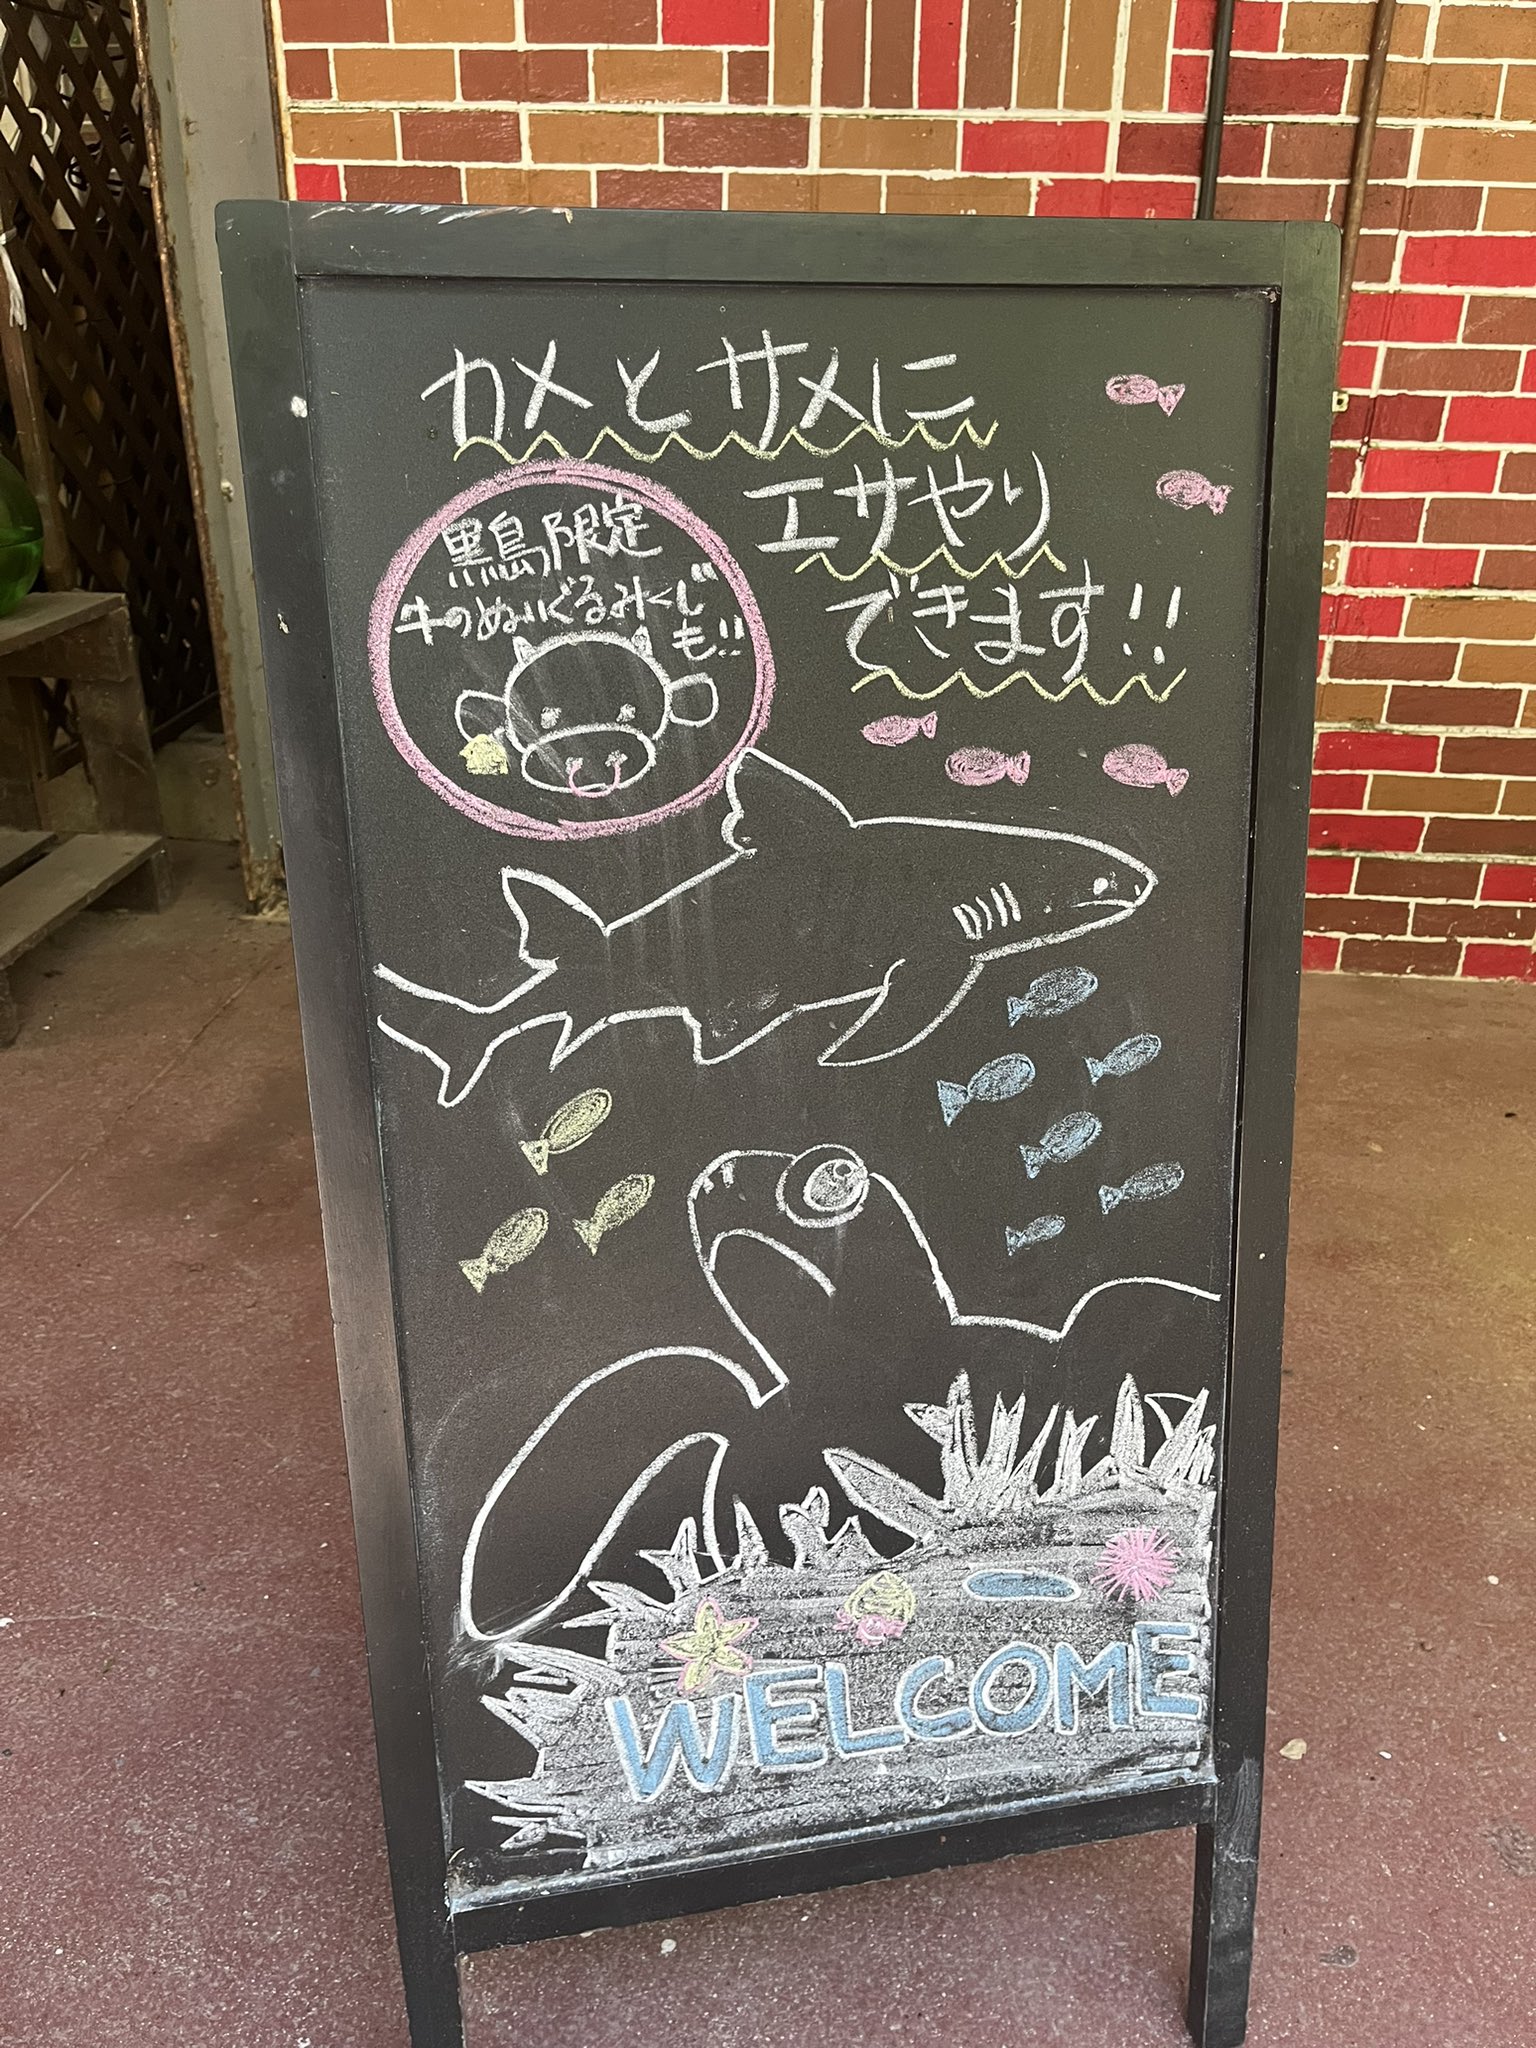 カメとサメに
エサやり
できます!!
黒島限定
牛のぬいぐるみくじ
も!!
WELCOME